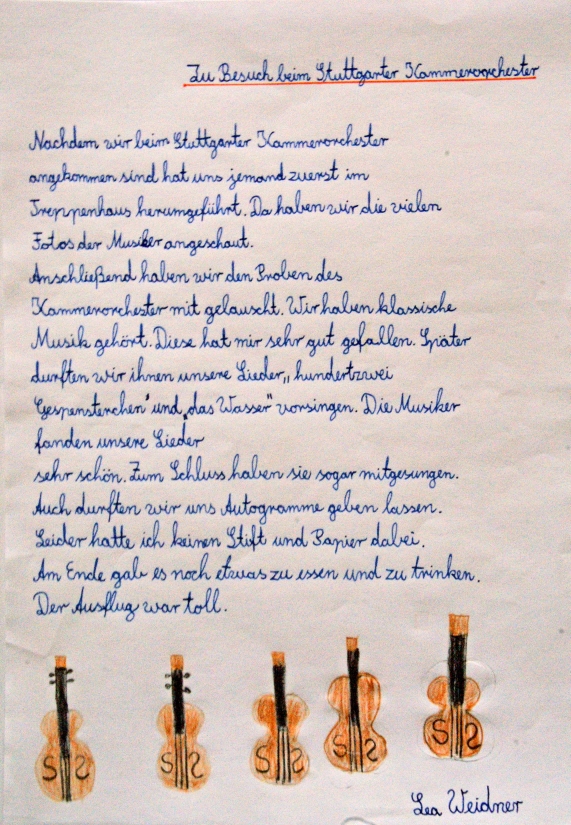 Zu Besuch beim Stuttgarter Kammerorchester
Nachdem wir beim Stuttgarter Kammerorchester
angekommen sind hat uns jemand zuerst im
Treppenhaus herumgeführt. Da haben wir die vielen
Fotos der Musiker angeschaut.
Anschließend haben wir den Proben des
Kammerorchester mit gelauscht. Wir haben klassische
Musik gehört. Diese hat mir sehr gut gefallen. Später
durften wir ihnen unsere Lieder„ hundertzwei
Gespensterchen“ und „das Wasser“ vorsingen. Die Musiker
fanden unsere Lieder
sehr schön. Zum Schluss haben sie sogar mitgesungen.
Auch durften wir uns Autogramme geben lassen.
Leider hatte ich keinen Stift und Papier dabei.
Am Ende gab es noch etwas zu essen und zu trinken.
Der Ausflug war toll.
Lea Weidner